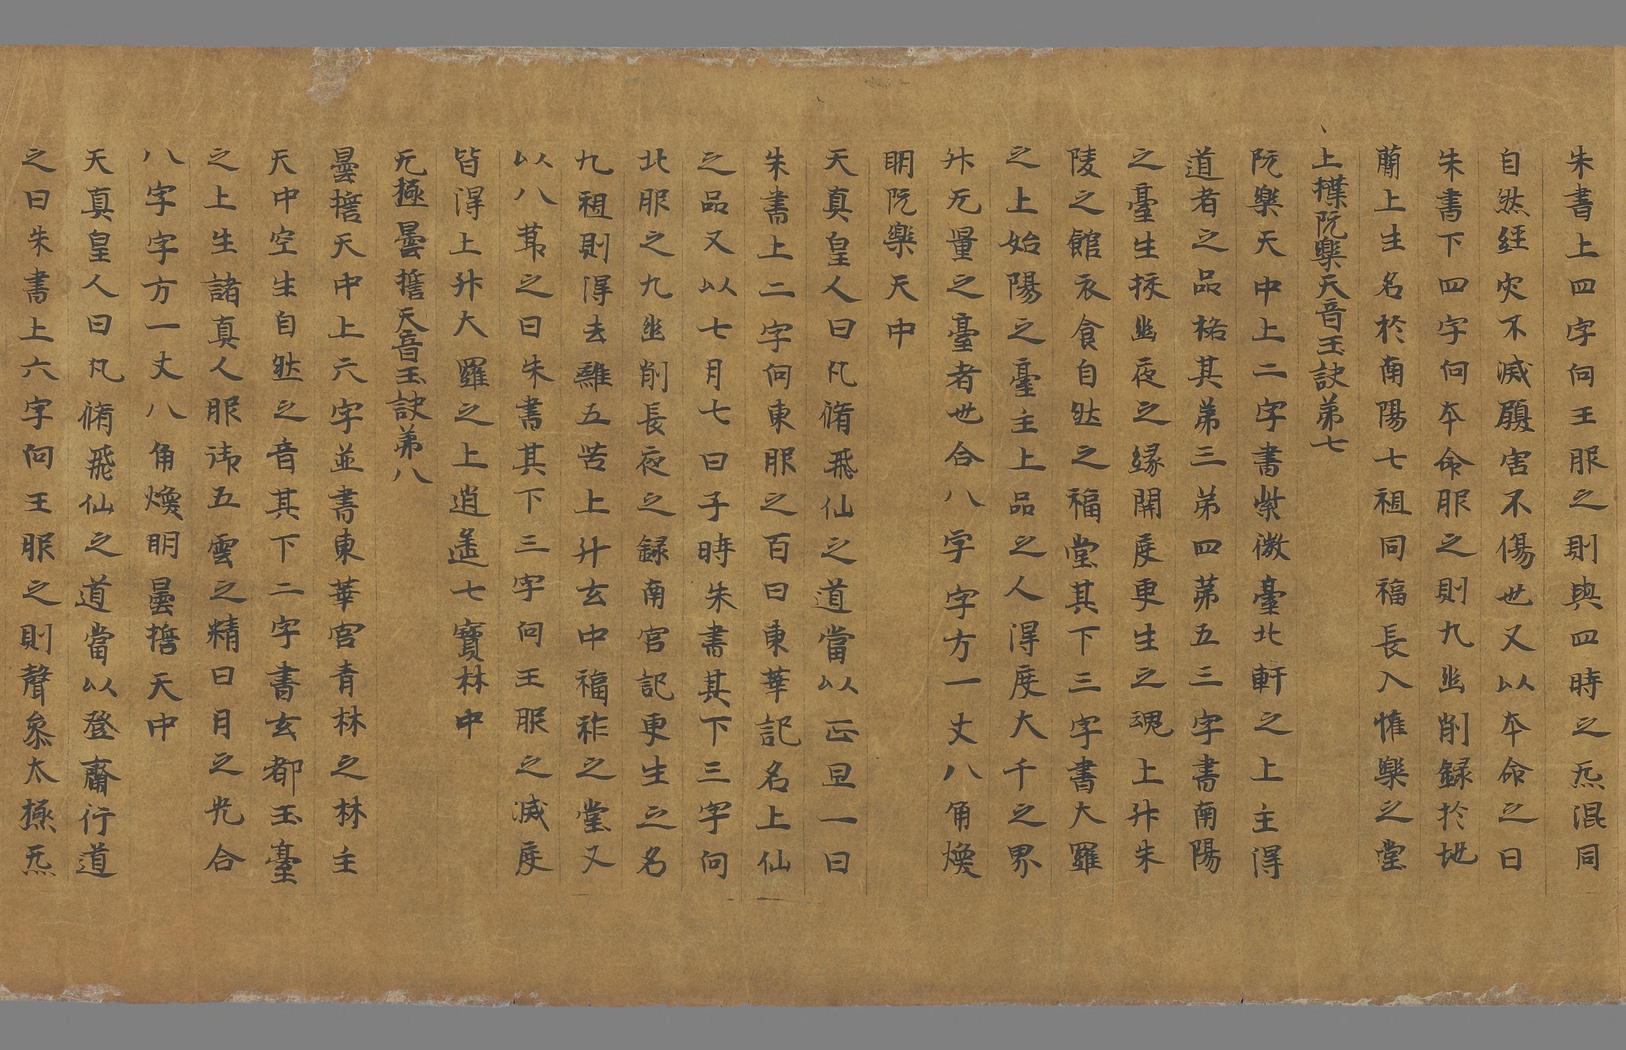 朱書上四字向王服之則與四時之炁混同
自然經灾不滅厲害不傷世又以本命之日
朱書下四字向本命服之則九幽削録於地
簡上生名於南陽七祖同福長入惟樂之堂
上揲阮樂天音玉訣第七
阮樂天中上二字書紫微臺北軒之上主得
道者之品格其第三第四第五三字書南陽
之臺生掞幽夜之縁開度更生之魂上升朱
陵之館衣食自然之福堂其下三字書大羅
之上始陽之臺主上品之人得度大千之界
升无量之臺者也合八字字方一丈八角煥
明阮樂天中
天真皇人曰凡脩飛仙之道當以正旦一日
朱書上二字向東服之百日東華記名上仙
之品又以七月七日子時朱書其下三字向
北服之九幽削長夜之録南宫記更生之名
九祖則得去離五苦上升玄中福祚之堂又
以八節之日朱書其下三字向王服之減度
皆得上升大羅之上逍遥七寶林中
无極曇誓天音玉訣第八
曇誓天中上六字並書東華宫青林之林主
天中空生自然之音其下二字書玄都玉臺
之上生諸真人服御五雲之精日月之光合
八字字方一丈八角煥明曇誓天中
天真皇人曰凡脩飛仙之道當以登齋行道
之日朱書上六字向王服之則聲參太極炁